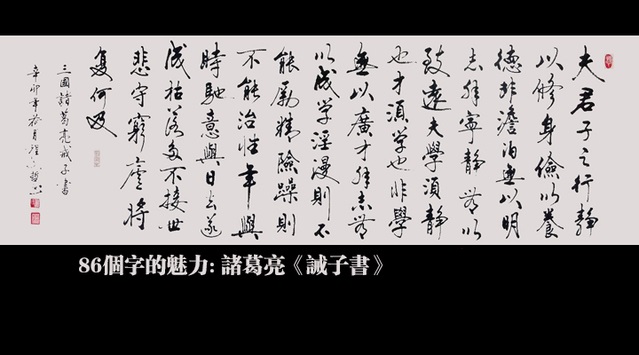 夫君子之行靜
以修身儉以養
德非澹泊無以明
志非寧靜無以
致遠夫學須靜
也才須學也非學
無以廣才非志無
以成学淫漫則不
能勵精險躁則
不能治性年與
時馳意與日去遂
成枯落多不接世
悲守窮廬將
復何及
三國諸葛亮誡子書
辛卯年
86個字的魅力: 諸葛亮《誡子書》